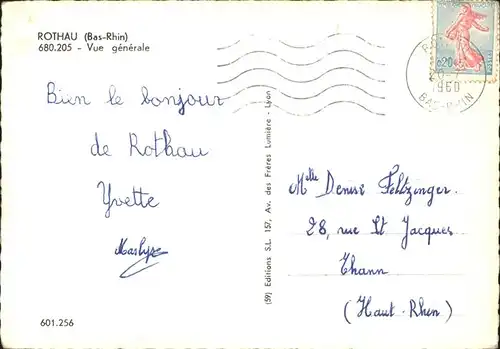 ROTHAU (Bas-Rhin)
680.205 - Vue générale
0,20
1960
BAS-RHIN
Bien le bonjour
de Rothau
Yvette
Marlyse
(59) Editions S.L. 157, Av. des Frères Lumière - Lyon
Melle Denise Feltzinger.
28, rue St Jacques
Thann
(Haut-Rhin)
601.256